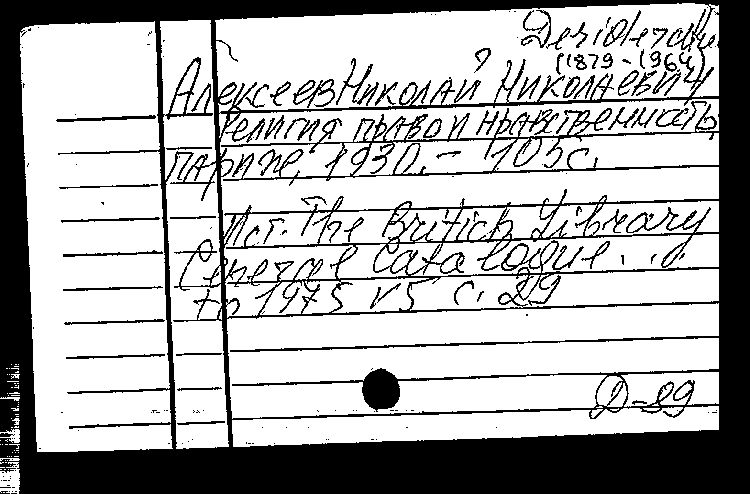 Desiderata
(1879-1964)
Алексеев Николай Николаевич
Религия право и нравственность,
париже, 1930. - 105 с.
Ист. The British Library
General Catalogue...
to 1975 v 5 с. 29
Д-89